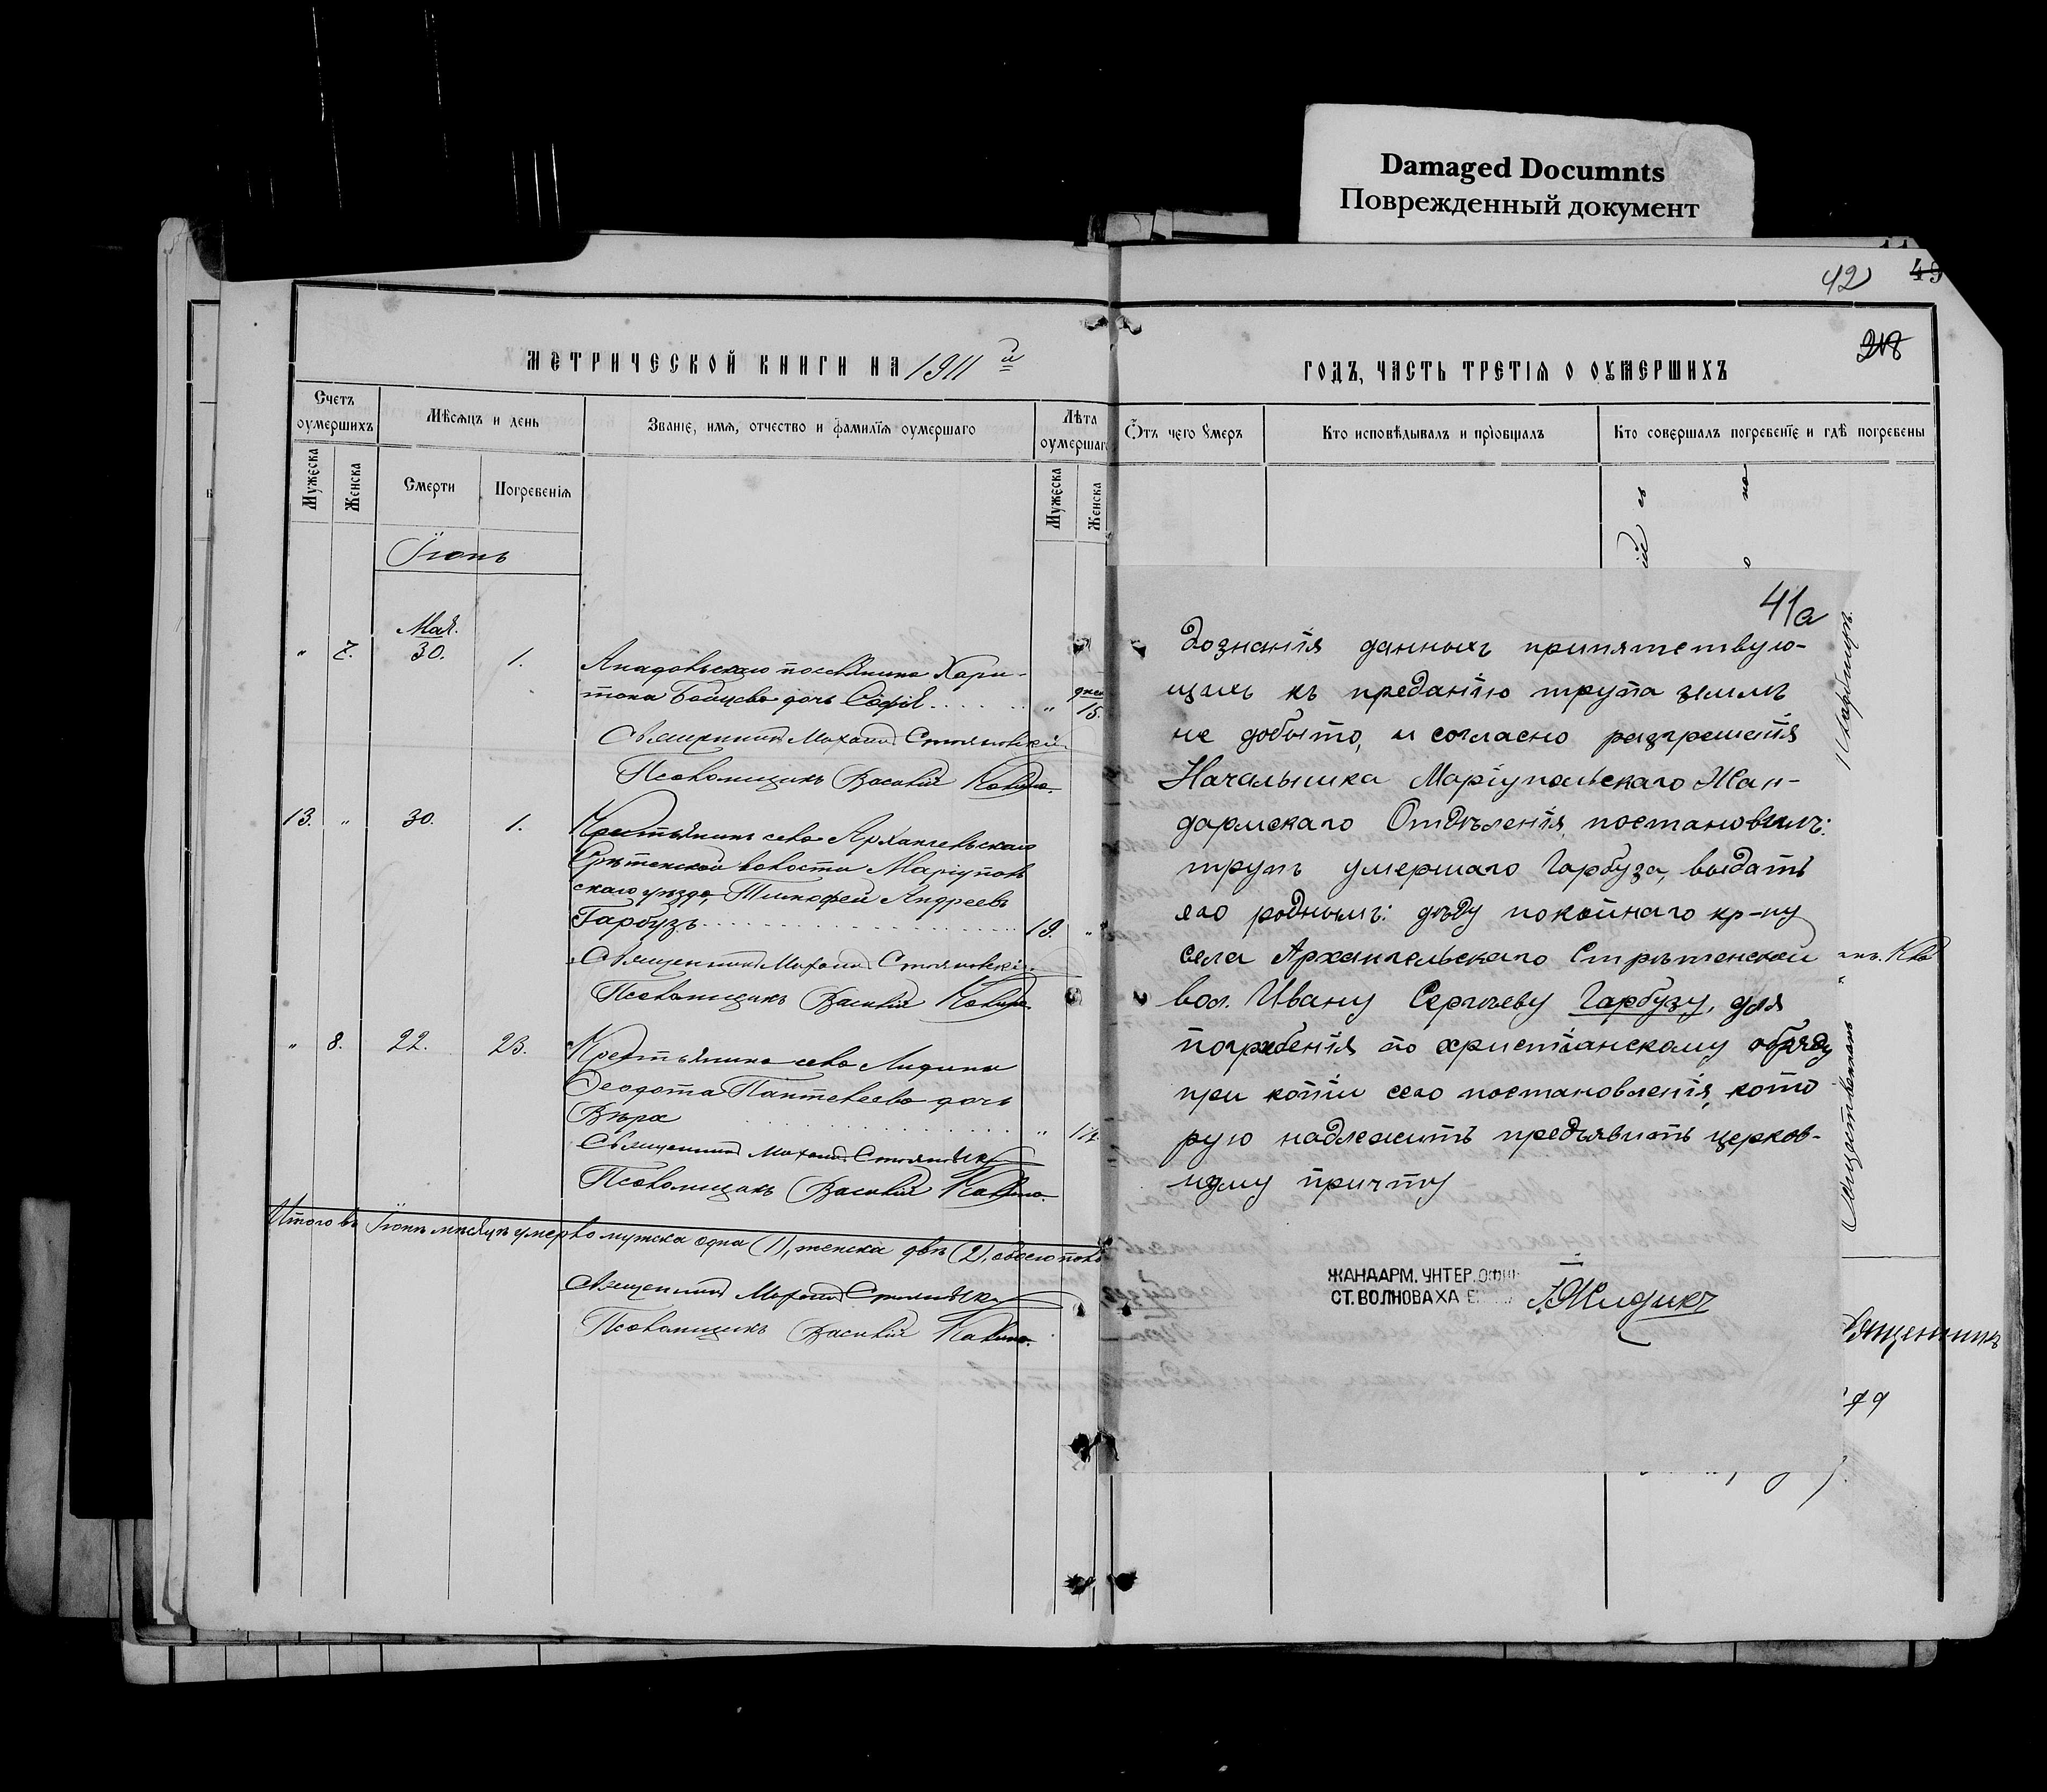 Damaged Documnts
Поврежденный документ
42 49
218
МЕТРИЧЕСКОЙ КНИГИ НА 1911й
ГОДЪ, ЧАСТЬ ТРЕТІѦ О ОУМЕРШИХЪ
Счетъ оумершихъ
Мѣсяцъ и день
Званіе, имя, отчество и фамилїя оумершаго
Лѣта оумершаго
Ѿтъ чего Умеръ
Кто исповѣдывалъ и прїобщалъ
Кто совершалъ погребенїе и гдѣ погребены
Мужеска
Женска
Смерти
Погребенія
Мужеска
Женска
Іюнь
Мая.
" 7. 30. 1.
Хари-
тона дочь Софія " 15.
Священникъ Михаилъ
Псаломщикъ Василій
13. " 30. 1. Крестьянинъ села Архангельскаго
Срѣтенской волости Маріуполь
скаго уѣзда, Тимофей Андреевъ
Гарбузъ 19. "
Священникъ Михаилъ
Псаломщикъ Василій
" 8. 22. 23. Крестьянина села
Ѳеодота Пантелеева дочь
Вѣра "
Священникъ Михаилъ
Псаломщикъ Василій
Итого въ Іюнѣ мѣсяцѣ умерло мужска одна (1), женска двѣ (2), обоего пола
Священникъ Михаилъ
Псаломщикъ Василій
41а
дознанія данныхъ припятствую-
щихъ къ преданію трупа землѣ
не добыто, и согласно разрешенія
Начальника Маріупольскаго Жан-
дармскаго Отдѣленія, постановилъ:
трупъ умершаго Гарбуза, выдать
его роднымъ: дѣду покойнаго кр-ну
села Архангельскаго Стрѣтенской
вол. Ивану Сергѣеву Гарбузу, для
погребенія по христіанскому обряду
при копіи сего постановленія, кото
рую надлежитъ предъявить церков-
ному причту
ЖАНДАРМ. УНТЕР. ОФИЦ
СТ. ВОЛНОВАХА Е
священникъ